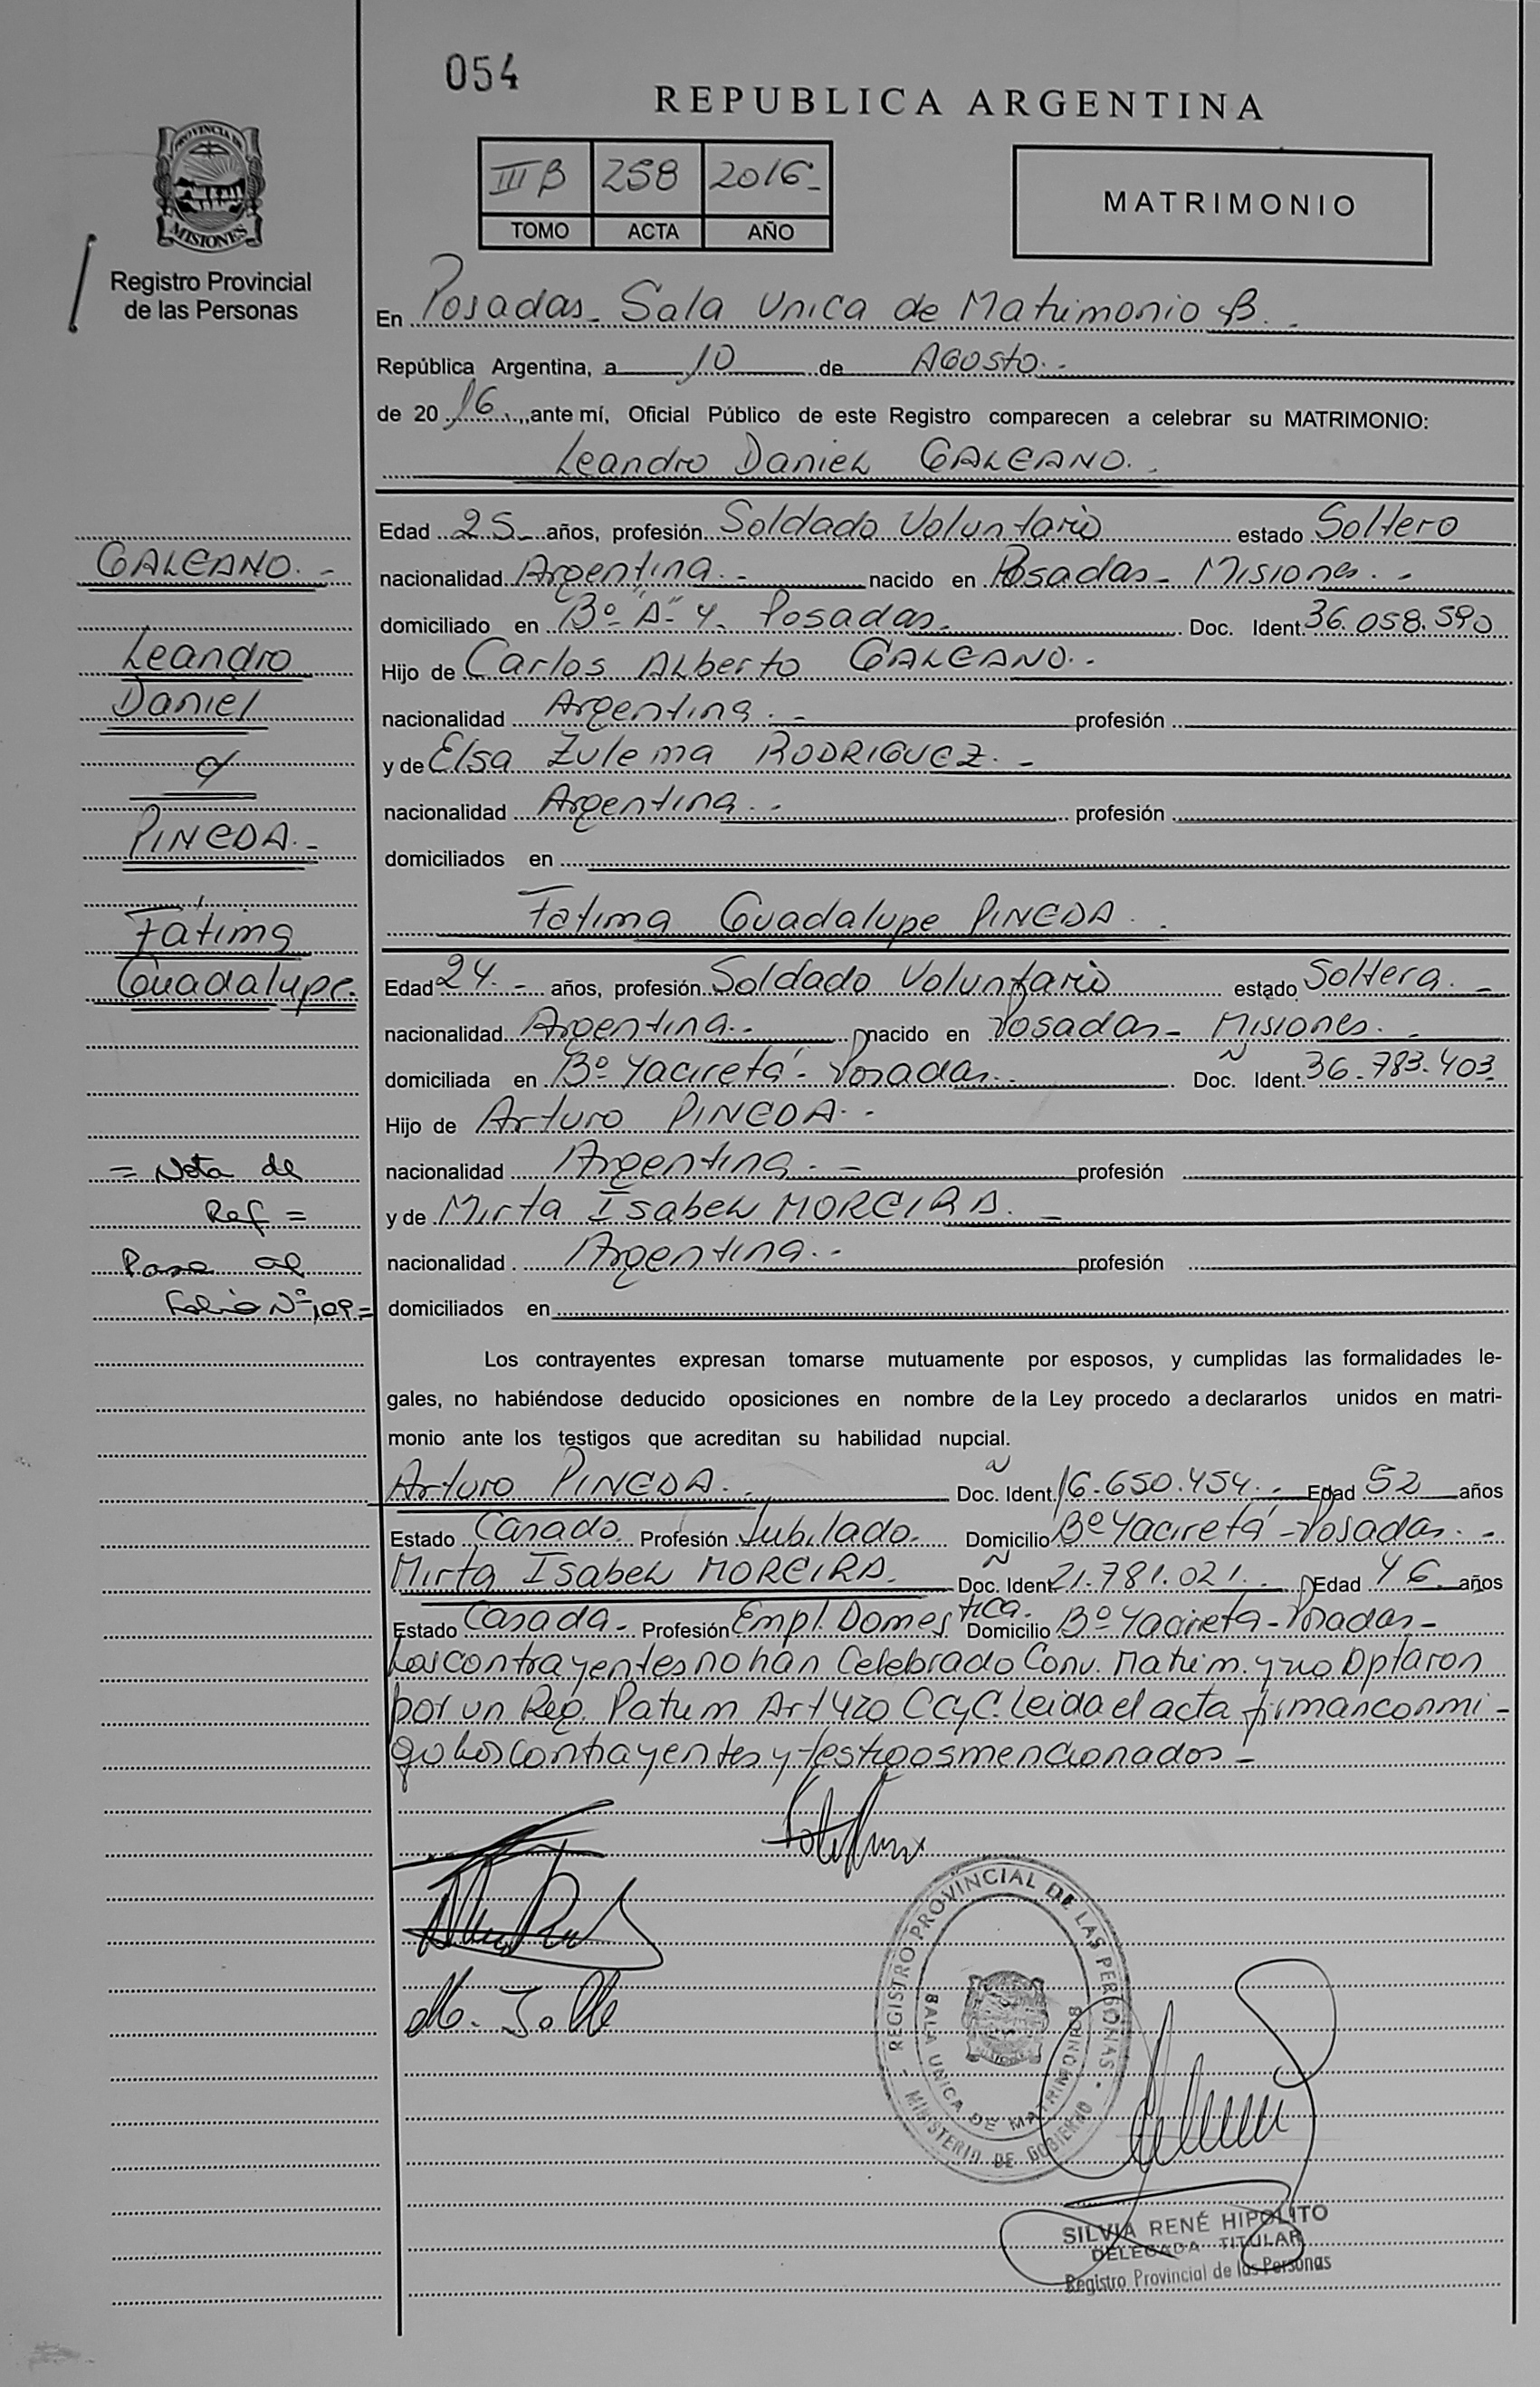 054
REPUBLICA ARGENTINA
III B 258 2016-
TOMO ACTA AÑO
MATRIMONIO
PROVINCIA DE
MISIONES
Registro Provincial
de las Personas
En Posadas - Sala Unica de Matrimonio B.-
República Argentina, a 10 de Agosto.-
de 20 16 ante mí, Oficial Público de este Registro comparecen a celebrar su MATRIMONIO:
Leandro Daniel GALEANO.-
Edad 25- años, profesión Soldado Voluntario estado Soltero
nacionalidad Argentina.- nacido en Posadas - Misiones.-
domiciliado en Bº "A" 4. Posadas. Doc. Ident. 36.058.590
Hijo de Carlos Alberto GALEANO.-
nacionalidad Argentina.- profesión
y de Elsa Zulema RODRIGUEZ.-
nacionalidad Argentina.- profesión
domiciliados en
Fátima Guadalupe PINEDA.
Edad 24.- años, profesión Soldado Voluntario estado Soltera.-
nacionalidad Argentina.- nacido en Posadas - Misiones.-
domiciliada en Bº Yaciretá - Posadas.- Doc. Ident. 36.783.403
Hijo de Arturo PINEDA.-
nacionalidad Argentina.- profesión
y de Mirta Isabel MOREIRA.-
nacionalidad Argentina.- profesión
domiciliados en
GALEANO.-
Leandro
Daniel
PINEDA.-
Fátima
Guadalupe
= Nota de
Ref =
Pasa al
Folio Nº 109=
Los contrayentes expresan tomarse mutuamente por esposos, y cumplidas las formalidades le-
gales, no habiéndose deducido oposiciones en nombre de la Ley procedo a declararlos unidos en matri-
monio ante los testigos que acreditan su habilidad nupcial.
Arturo PINEDA.- Doc. Ident. 16.650.454.- Edad 52 años
Estado Casado. Profesión Jubilado. Domicilio Bº Yaciretá - Posadas.-
Mirta Isabel MOREIRA. Doc. Ident. 21.781.021.- Edad 46 años
Estado Casada - Profesión Empl. Domestica. Domicilio Bº Yaciretá - Posadas -
Los contrayentes no han Celebrado Conv. Matrim. y no Optaron
por un Reg. Patrim Art 420 CCyC. Leida el acta firman conmi-
go los contrayentes y testigos mencionados -
REGISTRO PROVINCIAL DE LAS PERSONAS
SALA UNICA DE MATRIMONIOS
MINISTERIO DE GOBIERNO
SILVIA RENÉ HIPOLITO
DELEGADA TITULAR
Registro Provincial de las Personas